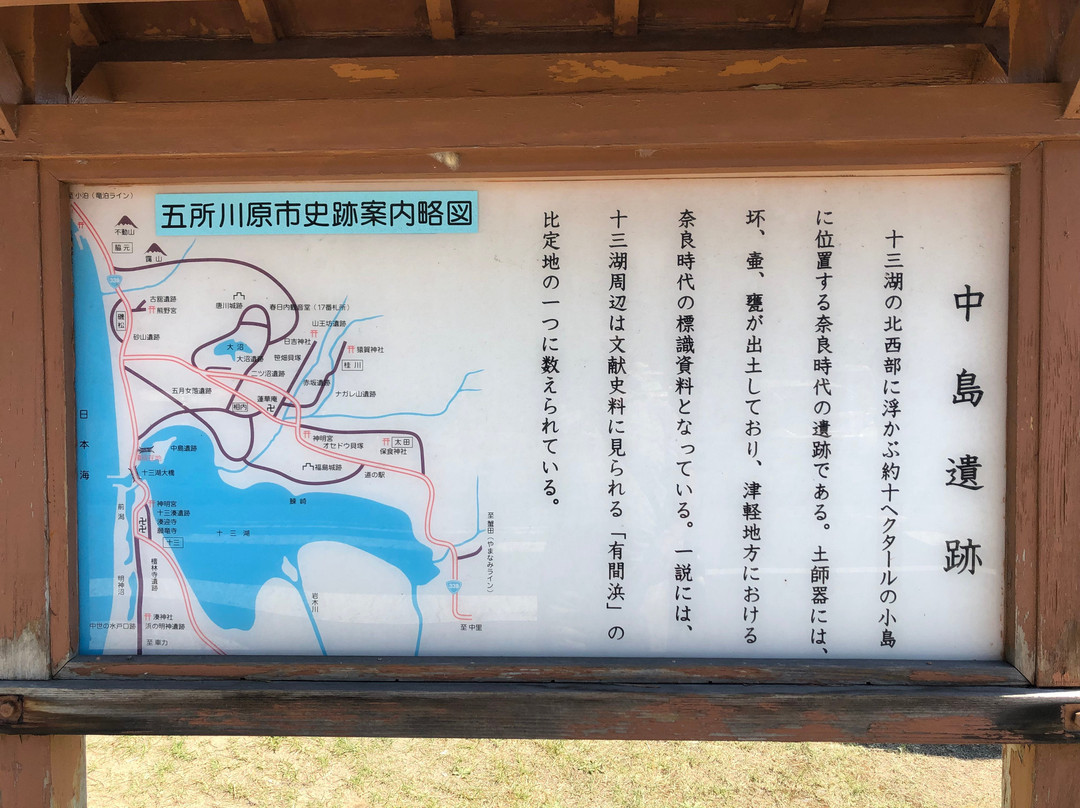 中島遺跡
十三湖の北西部に浮かぶ約十ヘクタールの小島
に位置する奈良時代の遺跡である。土師器には、
坏、壷、甕が出土しており、津軽地方における
奈良時代の標識資料となっている。一説には、
十三湖周辺は文献史料に見られる「有間浜」の
比定地の一つに数えられている。
五所川原市史跡案内略図
至小泊（竜泊ライン）
不動山
脇元
靄山
古舘遺跡
熊野宮
磯松
砂山遺跡
唐川城跡
春日内観音堂（17番札所）
山王坊遺跡
日吉神社
大沼
大沼遺跡
笹畑貝塚
猿賀神社
桂川
二ツ沼遺跡
赤坂遺跡
五月女萢遺跡
蓮華庵
ナガレ山遺跡
相内
日本海
神明宮
オセドウ貝塚
太田
保食神社
中島遺跡
福島城跡
道の駅
十三湖大橋
鰊崎
前潟
神明宮
十三湊遺跡
湊迎寺
願竜寺
十三
十三湖
至蟹田（やまなみライン）
檀林寺遺跡
明神沼
岩木川
339
湊神社
浜の明神遺跡
中世の水戸口跡
至車力
至中里